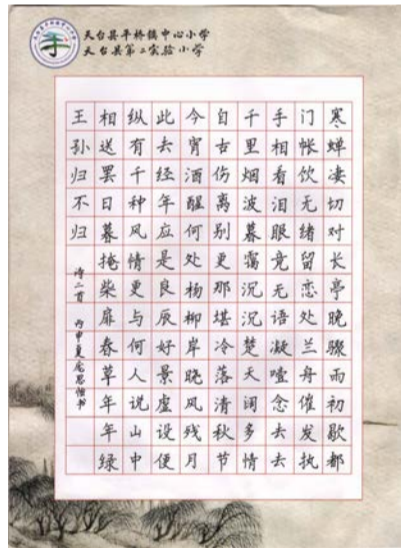 天台县平桥镇中心小学
天台县第二实验小学
寒蝉凄切对长亭晚骤雨初歇都
门帐饮无绪留恋处兰舟催发执
手相看泪眼竟无语凝噎念去去
千里烟波暮霭沉沉楚天阔多情
自古伤离别更那堪冷落清秋节
今宵酒醒何处杨柳岸晓风残月
此去经年应是良辰好景虚设便
纵有千种风情更与何人说山中
相送罢日暮掩柴扉春草年年绿
王孙归不归
诗二首 丙申夏 书